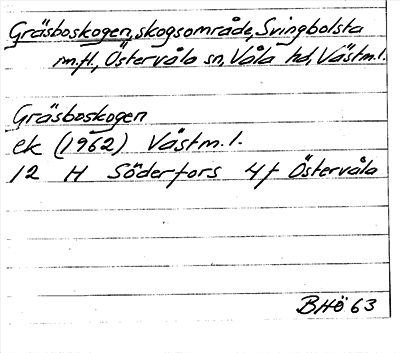 Gräsboskogen, skogsområde, Svingbolsta
m.fl., Östervåla sn, Våla hd, Västm.l.
Gräsboskogen
ek (1962) Västm.l.
12 H Söderfors 4f Östervåla
BHö 63